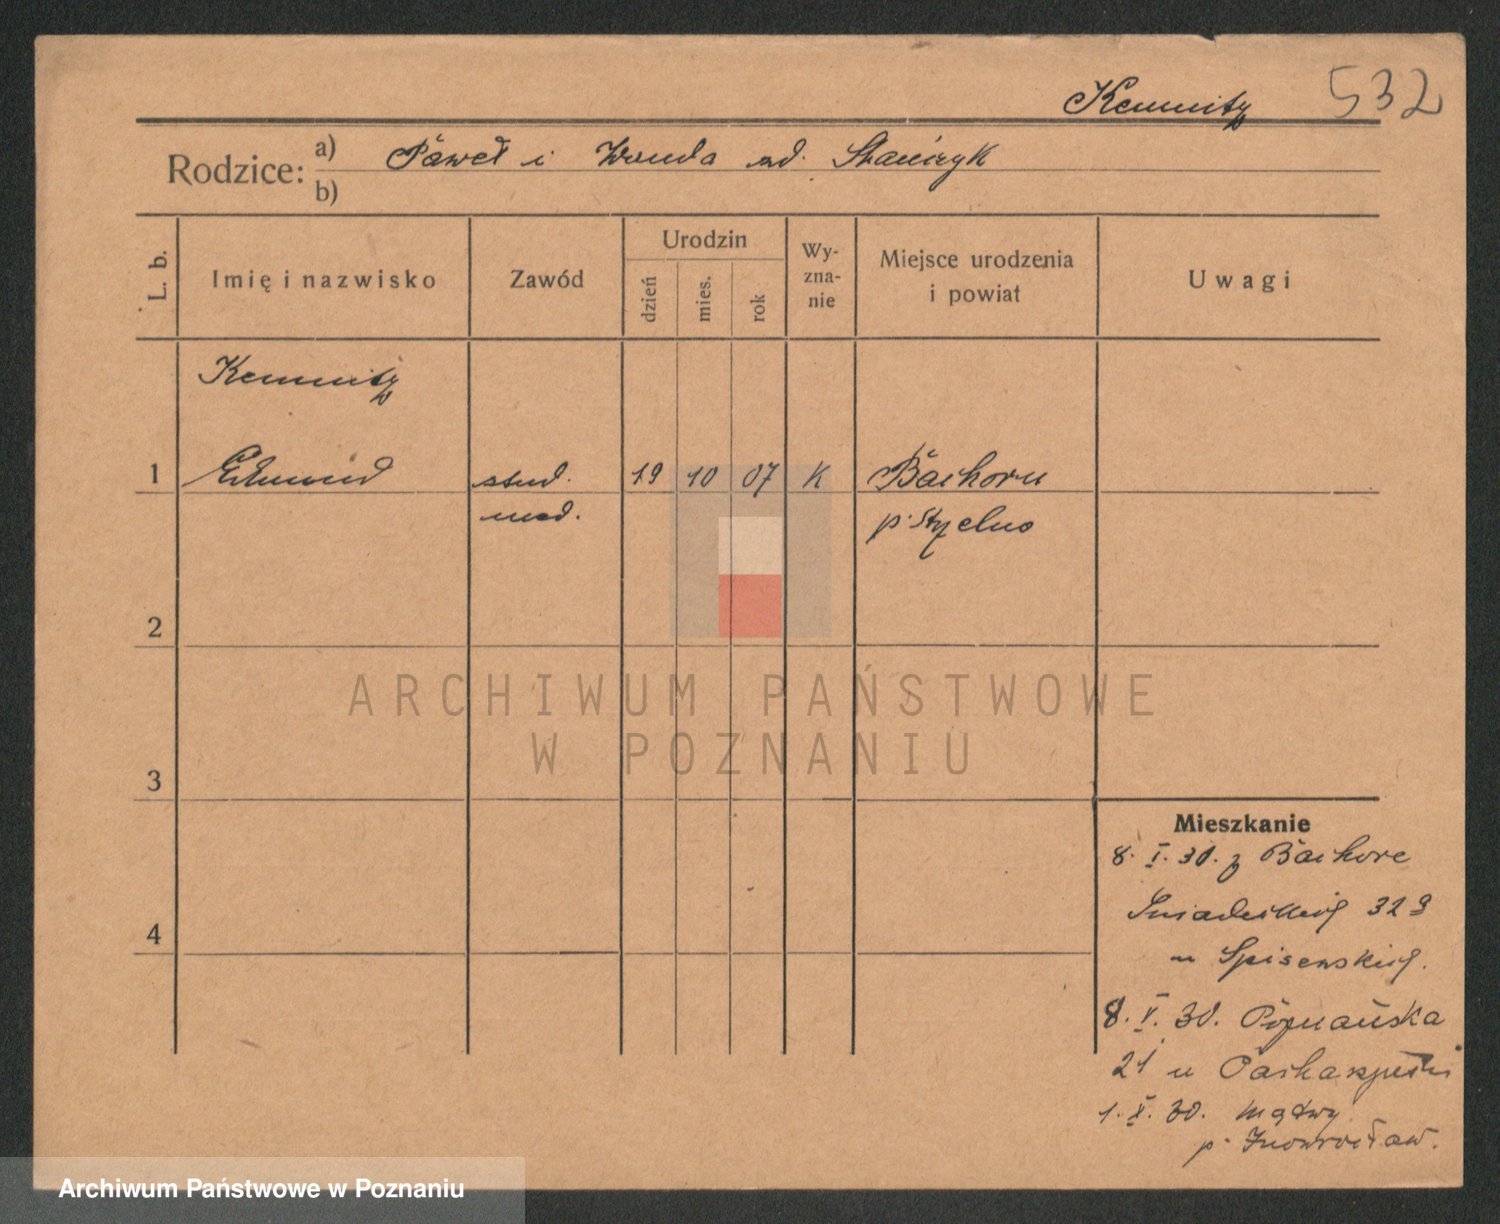 Kemnitz 532
Rodzice: a) Paweł i Wanda zd. Stańczyk
b)
L. b. Imię i nazwisko Zawód Urodzin dzień mies. rok Wyznanie Miejsce urodzenia i powiat Uwagi
Kemnitz
1 Edmund stud. 19 10 07 K Bachorce
med. p. Strzelno
2
ARCHIWUM PAŃSTWOWE
W POZNANIU
3
Mieszkanie
8. I. 30. z Bachorc
4 Śniadeckich 32
u
8. V. 30. Poznańska
21 u
1. X. 30. Mątwy
p. Inowrocław.
Archiwum Państwowe w Poznaniu